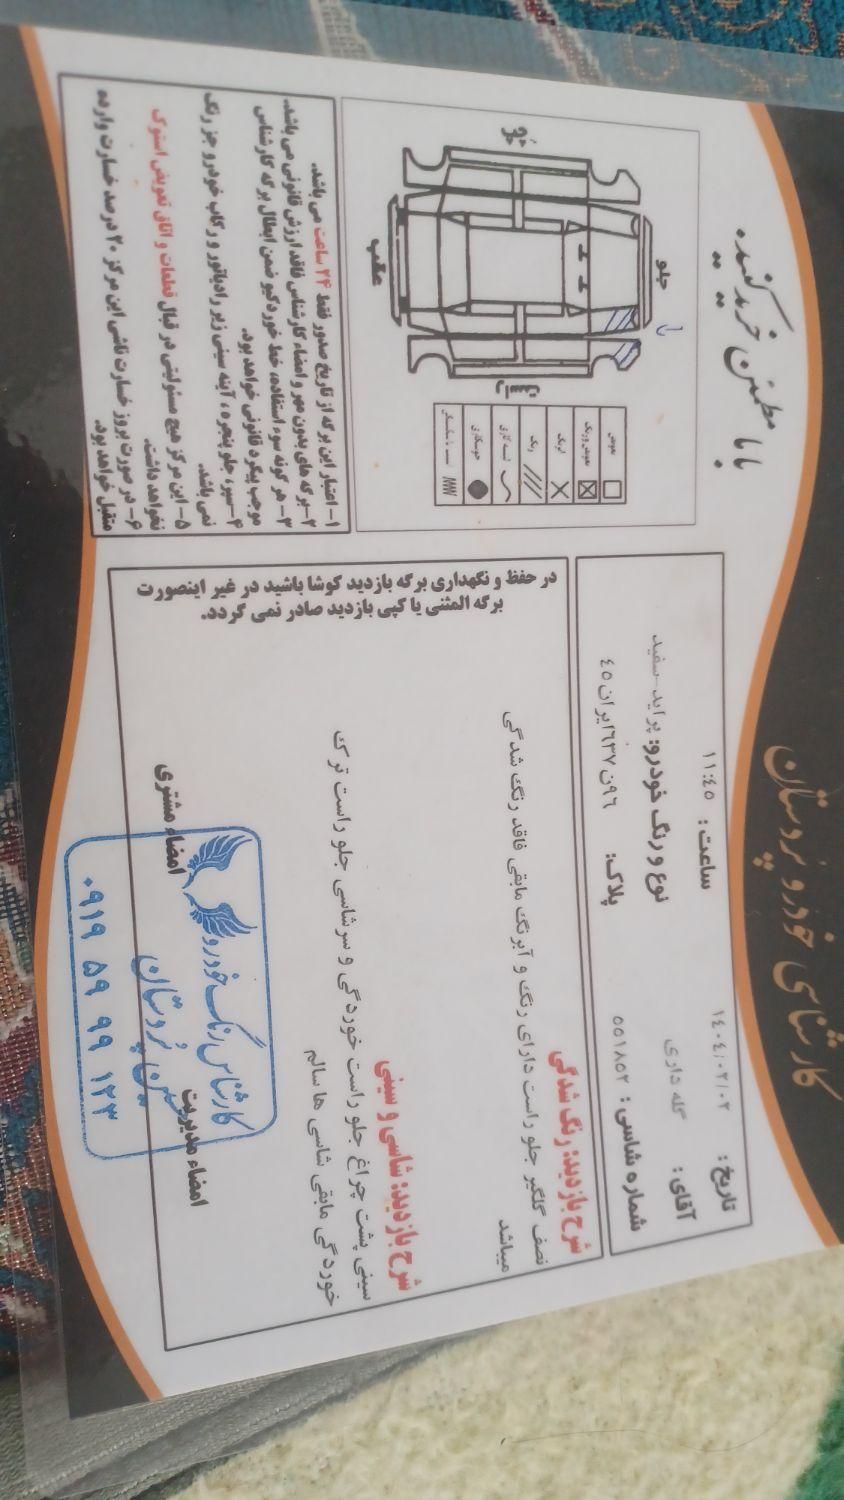 کارشناسی خودرو پروستان
با ما مطمئن خرید کنید.
تاریخ: ۱۴۰۴/۰۲/۰۲
ساعت: ۱۱:۴۵
آقای: گله داری
نوع و رنگ خودرو: پراید-سفید
شماره شاسی: ۵۵۱۸۵۲
پلاک: ۹۶ن۶۳۷ایران۴۵
شرح بازدید: رنگ شدگی
نصف گلگیر جلو راست دارای رنگ و آبرنگ مابقی فاقد رنگ شدگی
میباشد
شرح بازدید: شاسی و سینی
سینی پشت چراغ جلو راست خوردگی و سرشاسی جلو راست ترک
خوردگی مابقی شاسی ها سالم
در حفظ و نگهداری برگه بازدید کوشا باشید در غیر اینصورت
برگه المثنی یا کپی بازدید صادر نمی گردد.
امضاء مدیریت
امضاء مشتری
کارشناس رنگ خودرو
پروستان
۰۹۱۹ ۵۹ ۹۹ ۱۲۳
جلو
عقب
چپ
راست
تعویض
تعویض و رنگ
لیرنگ
رنگ
لیسه گیری
جوشکاری
۱- اعتبار این برگه از تاریخ صدور فقط ۲۴ ساعت می باشد.
۲- برگه های بدون مهر و امضاء کارشناس فاقد ارزش قانونی می باشد.
۳- هر گونه سوء استفاده، خط خوردگیو ضمن ابطال برگه کارشناس
موجب پیگرد قانونی خواهد بود.
۴- سپر، جلو پنجره، آینه سینی زیر رادیاتور و رکاب خودرو جز رنگ
نمی باشد.
۵- این مرکز هیچ مسئولیتی در قبال قطعات و اتاق تعویض استوک
نخواهد داشت.
۶- در صورت بروز خسارت ناشی این مرکز ۲۰ درصد خسارت وارده
متقبل خواهد بود.